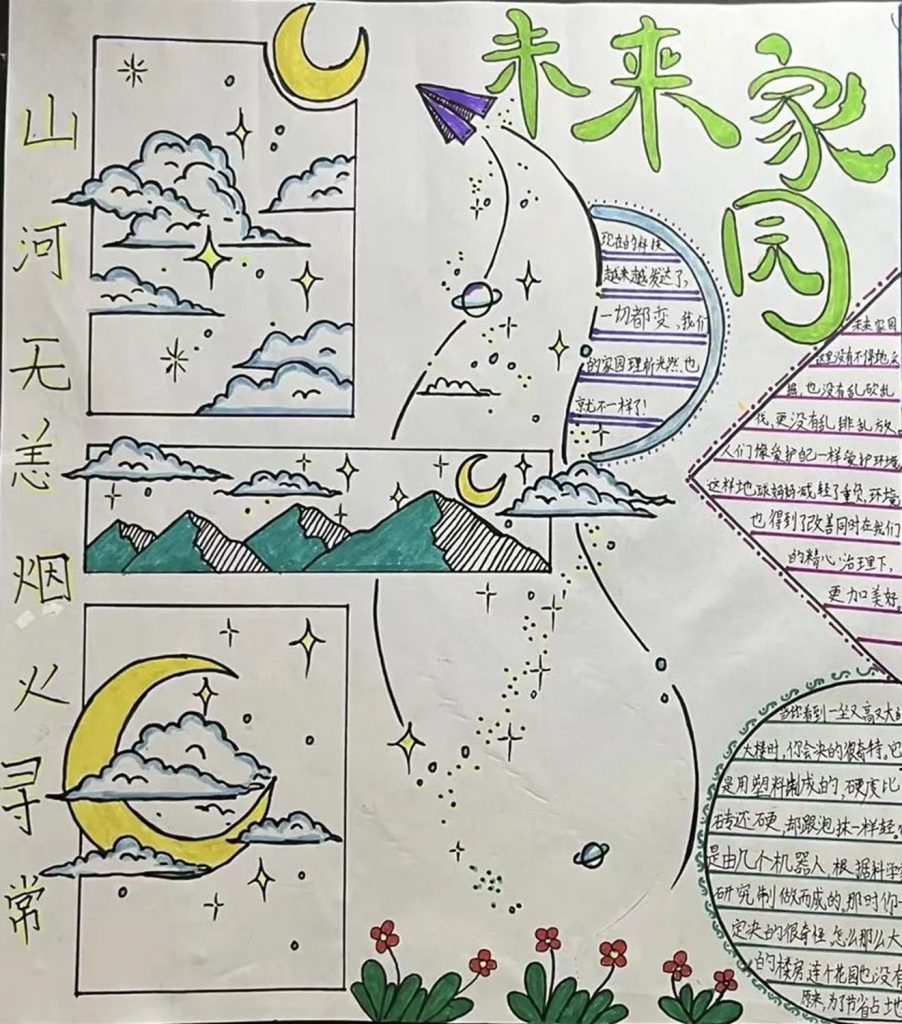 未来家园
山河无恙烟火寻常
现在的科技
越来越发达了,
一切都变,我们
的家园理所当然也
就不一样了!
未来家园
这里没有不停地
也没有乱砍乱
伐,更没有乱排乱放。
人们像爱护自己一样爱护环境
这样地球妈妈减轻了重负,环境
也得到了改善同时在我们
的精心治理下,
更加美好,
当你看到一坐又高又大的
大楼时,你会决的很奇特。它
是用塑料制成的,硬度比
砖还硬,却跟泡抹一样轻。
是由几个机器人根据科学
研究制做而成的,那时你一
定决的很奇怪怎么那么大
的楼房连个花园也没有
原来,为了节省占地